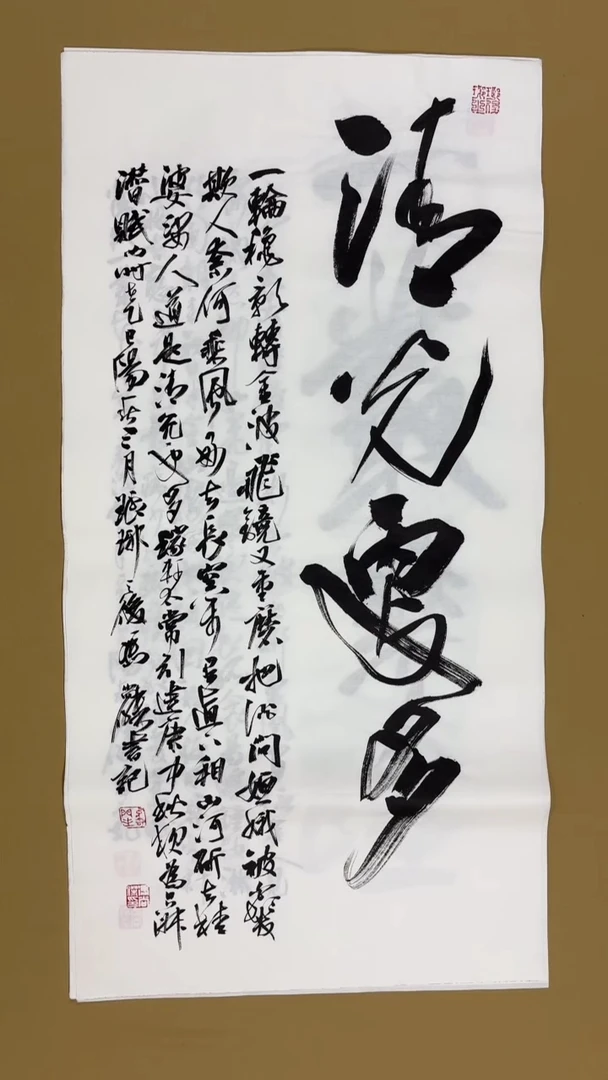 清光更多
一輪秋影轉金波飛鏡又重磨把酒問姮娥被白髮
欺人奈何乘風好去長空万里直下看山河斫去桂
婆娑人道是清光更多稼軒太常引建康中秋夜為呂叔
潛賦時乙巳陽春三月書記